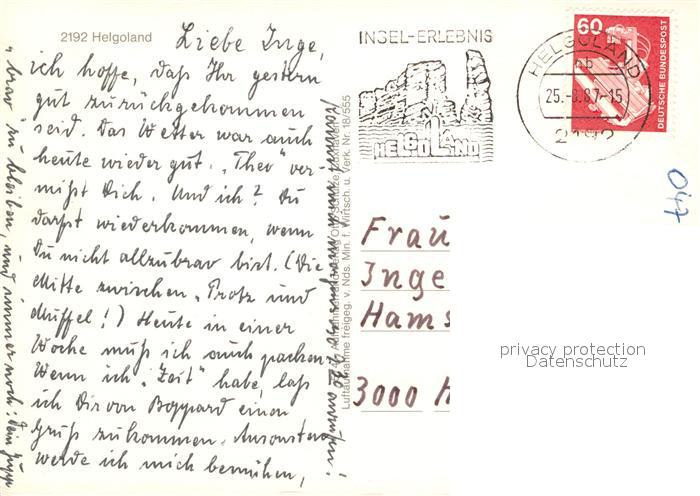 2192 Helgoland
Liebe Inge,
ich hoffe, daß Ihr gestern
gut zurückgekommen
seid. Das Wetter war auch
heute wieder gut. „Theo“ ver-
mißt Dich. Und ich? Du
darfst wiederkommen, wenn
Du nicht allzubrav bist. (Die
Mitte zwischen „Protz und
Muffel!) Heute in einer
Woche muß ich auch packen.
Wenn ich „Zeit“ habe, laß
ich Dir von Boppard einen
Gruß zukommen. Ansonsten
werde ich mich bemühen,
„brav“ zu bleiben, und immer noch: Dein
Luftaufnahme freigeg. v. Nds. Min. f. Wirtsch. u. Verk. Nr. 18/555
INSEL-ERLEBNIS
HELGOLAND
HELGOLAND
25.-8.87-15
2192
60
DEUTSCHE BUNDESPOST
047
Frau
Inge
Hams
3000 H
privacy protection
Datenschutz